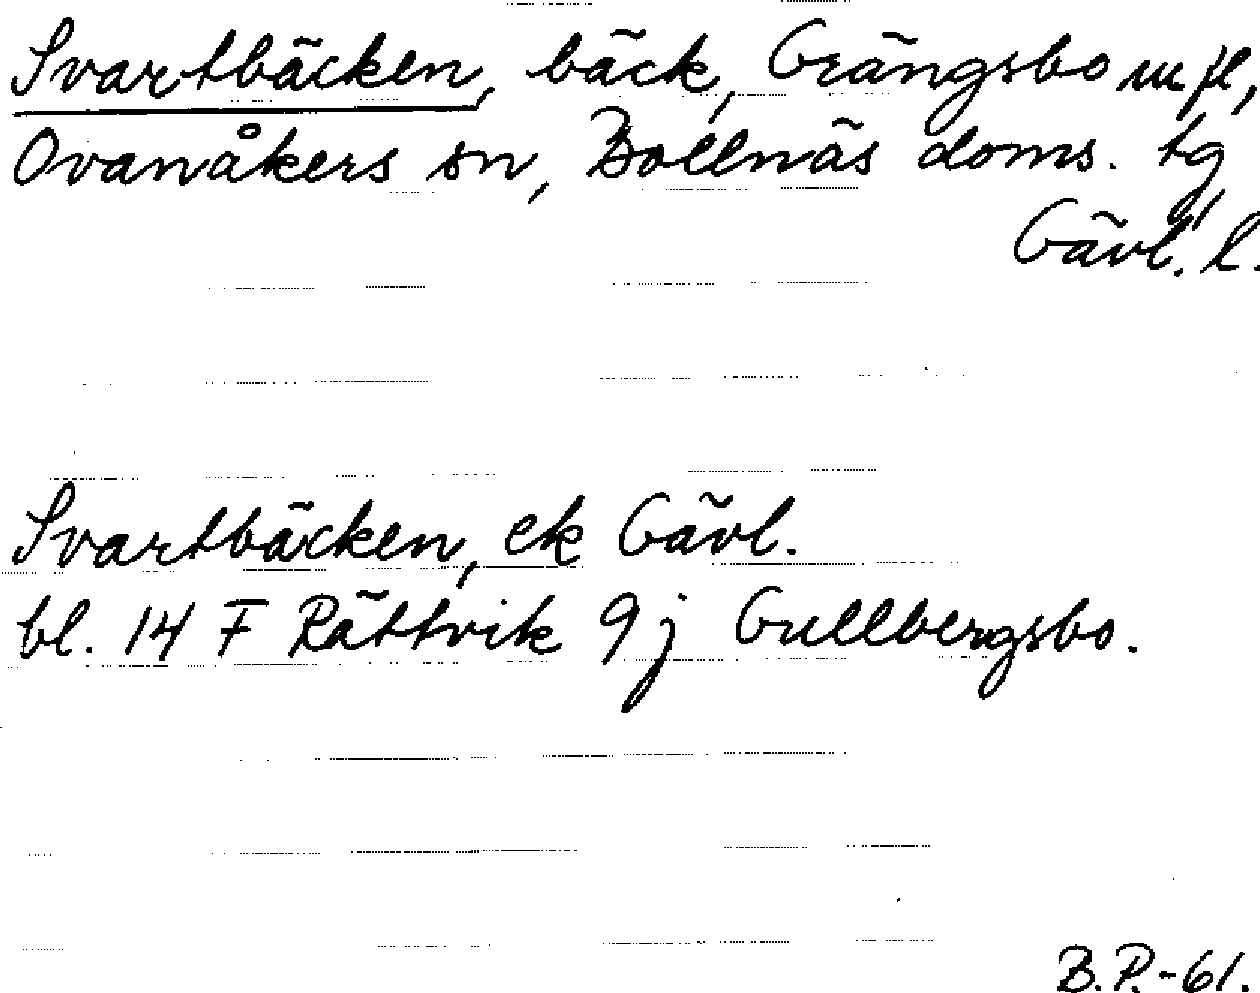 Svartbäcken, bäck, Grängsbo m fl,
Ovanåkers sn, Bollnäs doms. tg,
Gävl. l.
Svartbäcken, ek Gävl.
bl. 14 F Rättvik 9 j Gullbergsbo.
B.P.-61.